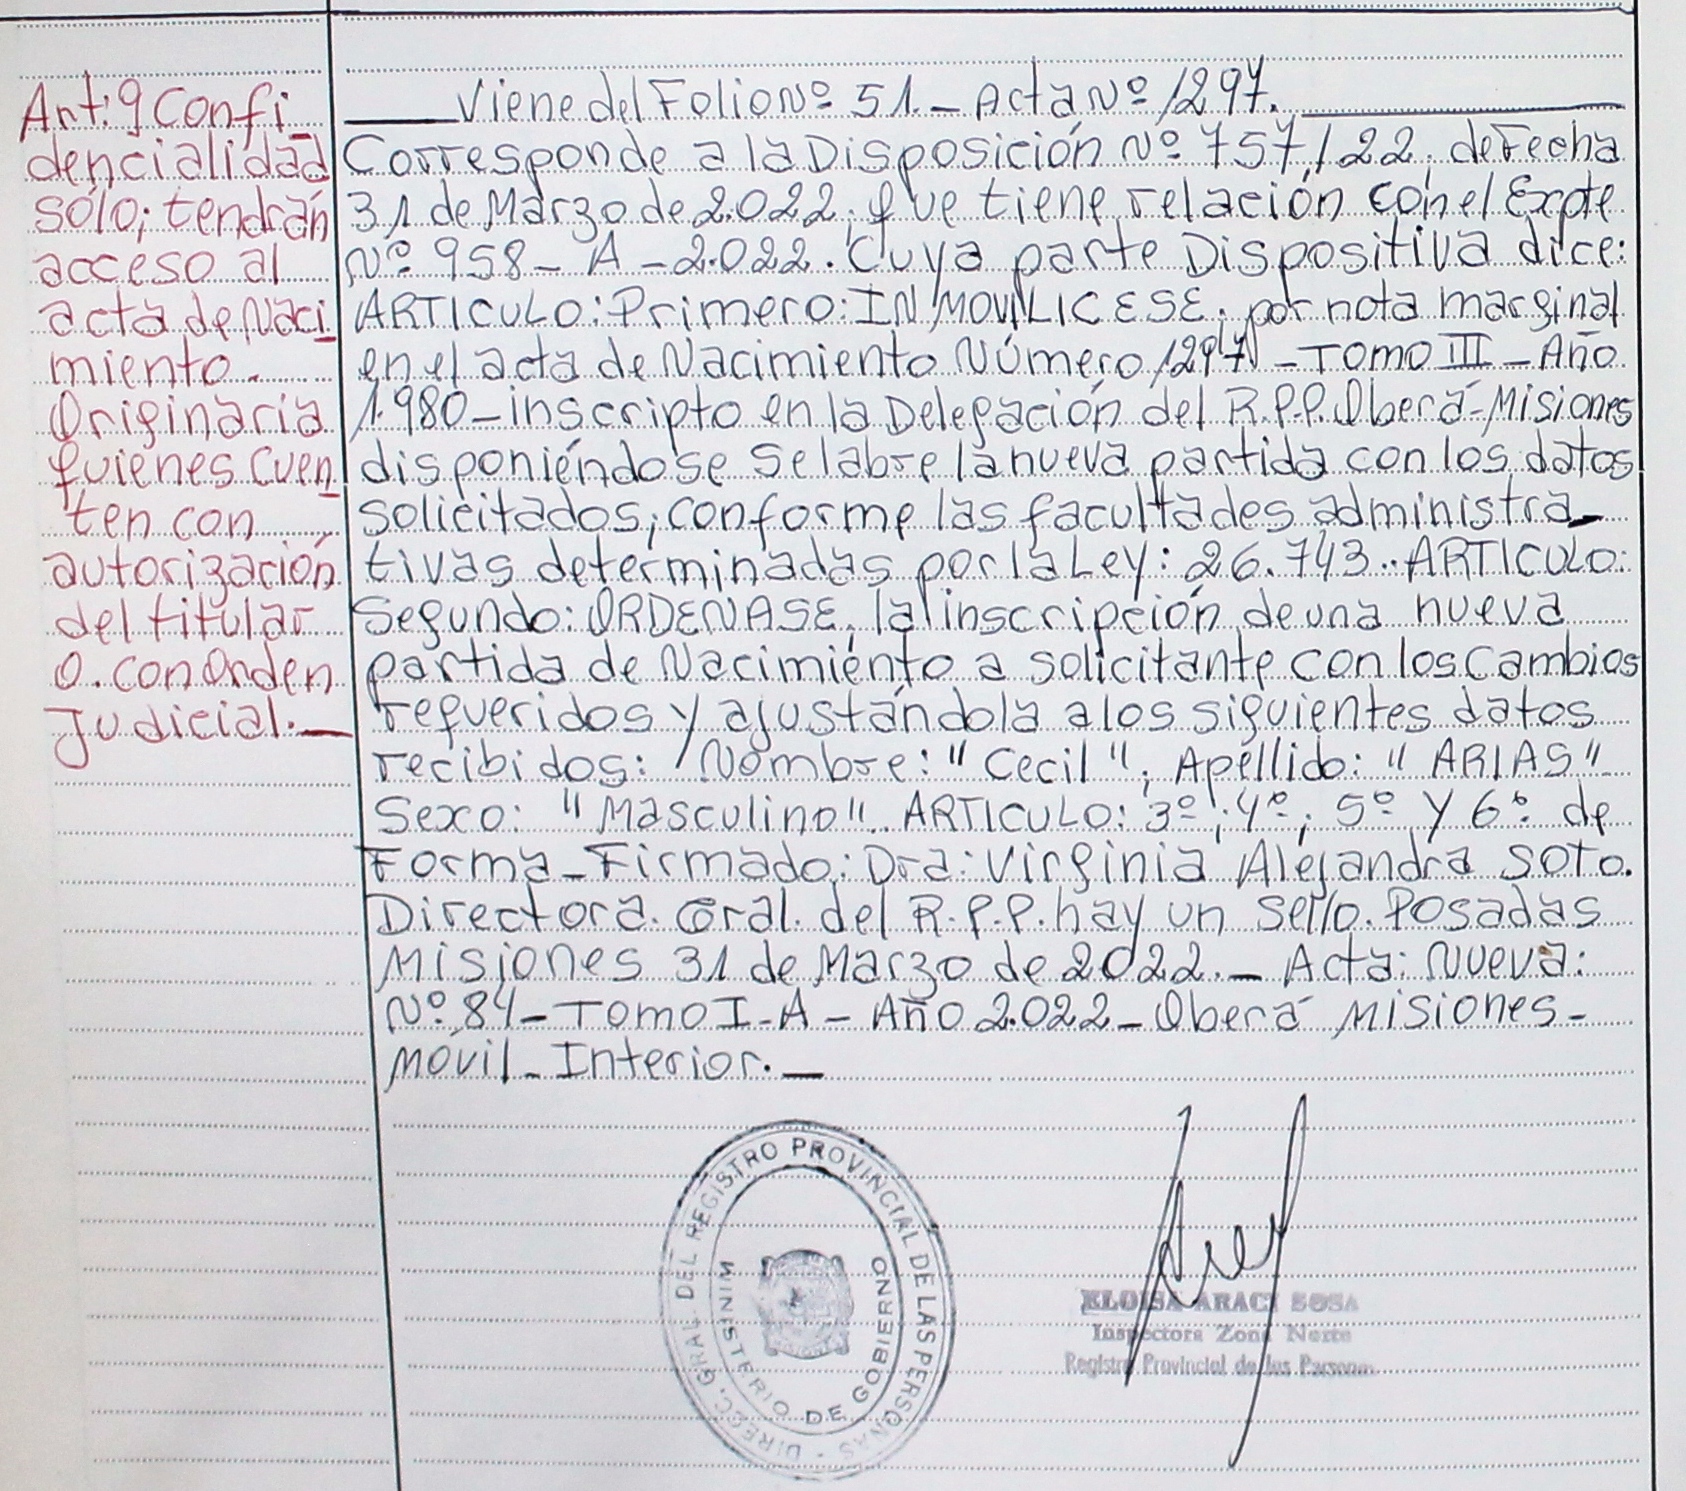 Art: 9 Confi
dencialidad
sólo; tendrán
acceso al
acta de Naci
miento.
Originaria
quienes cuen
ten con
autorización
del titular
O. con Orden
Judicial.
Viene del Folio Nº 51. - Acta Nº 1297.
Corresponde a la Disposición Nº 757/22, de Fecha
31 de Marzo de 2.022, que tiene relación con el Expte
Nº 958 - A - 2.022. Cuya parte Dispositiva dice:
ARTICULO: Primero: INMOVILICESE, por nota marginal
en el acta de Nacimiento Número 1297 - TOMO III - Año
1.980 - inscripto en la Delegación del R.P.P. Oberá - Misiones
disponiéndose se labre la nueva partida con los datos
solicitados; conforme las facultades administra
tivas determinadas por la Ley: 26.743.. ARTICULO:
Segundo: ORDENASE, la inscripción de una nueva
partida de Nacimiento a solicitante con los Cambios
requeridos y ajustándola a los siguientes datos
recibidos: Nombre: "Cecil", Apellido: "ARIAS"
Sexo: "Masculino". ARTICULO: 3º; 4º; 5º y 6º de
Forma - Firmado: Dra: Virginia Alejandra SOTO.
Directora. Gral. del R.P.P. hay un Sello. Posadas
Misiones 31 de Marzo de 2022. - Acta: Nueva:
Nº 84 - TOMO I - A - Año 2.022 - Oberá Misiones -
Móvil - Interior. -
DIRECC. GRAL. DEL REGISTRO PROVINCIAL DE LAS PERSONAS
MINISTERIO DE GOBIERNO
ELOISA ARACI SOSA
Inspectora Zona Norte
Registro Provincial de las Personas